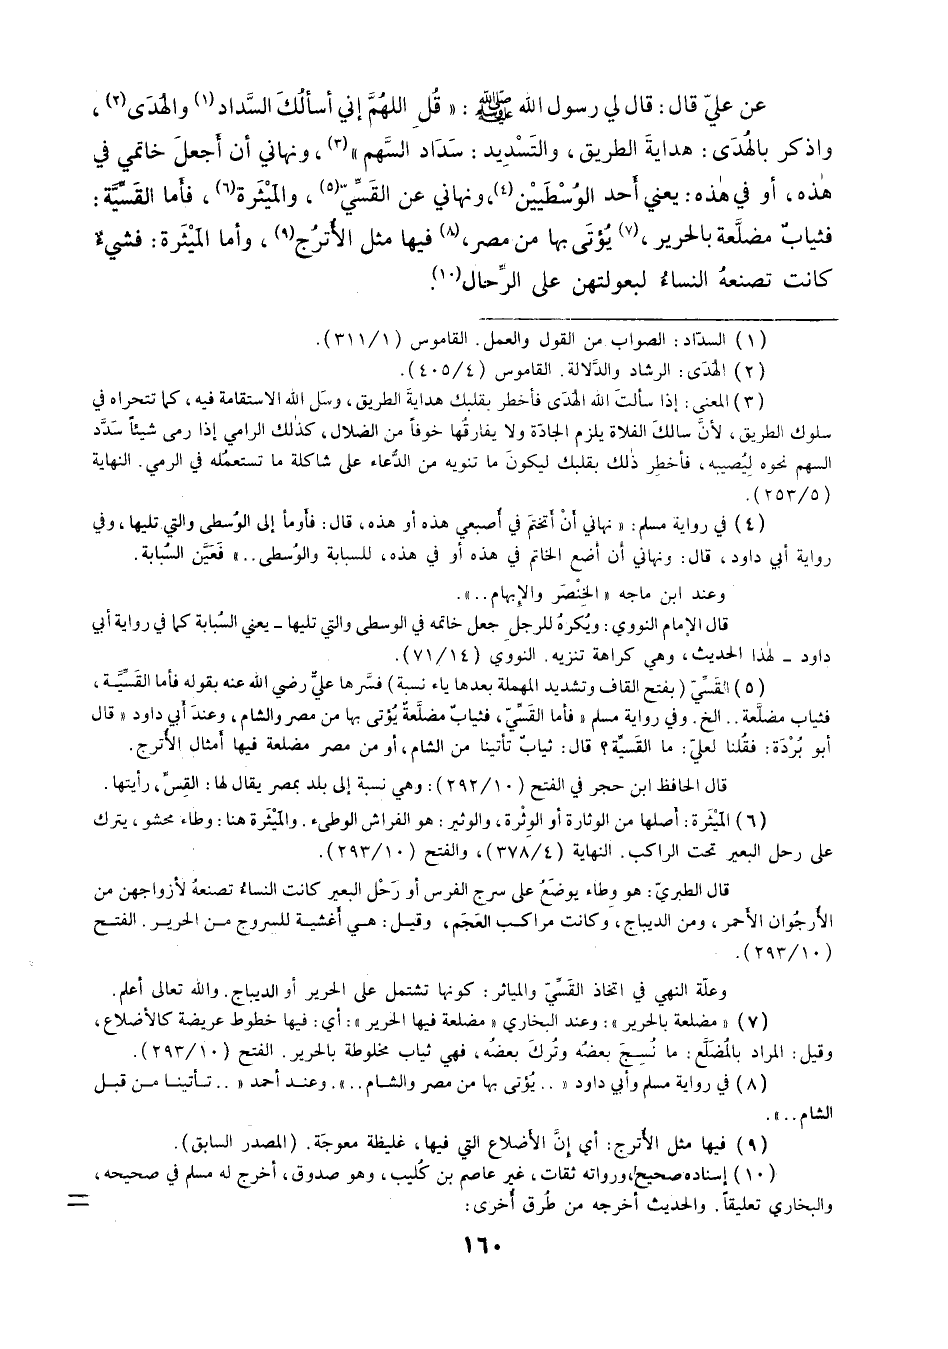 عن عليّ قال: قال لي رسول الله ﷺ: «قُلِ اللهُمَّ إني أسألُكَ السَّداد(١) والهُدَى(٢)،
واذكر بالهُدَى: هدايةَ الطريق، والتَسْدِيد: سَدَاد السَّهم»(٣)، ونهاني أن أجعلَ خاتمي في
هٰذه، أو في هٰذه: يعني أحد الوُسْطَيَيْن(٤)، ونهاني عن القَسِّيّ(٥)، والمِيْثَرة(٦)، فأما القَسِّيَّة:
فثيابٌ مضلَّعة بالحرير،(٧) يُؤتَى بها من مصر،(٨) فيها مثل الأُترُج(٩)، وأما المِيْثَرة: فشيءٌ
كانت تصنعهُ النساءُ لبعولتهن على الرِّحال(١٠).
(١) السدّاد: الصواب من القول والعمل. القاموس (٣١١/١).
(٢) الهُدَى: الرشاد والدَّلالة. القاموس (٤٠٥/٤).
(٣) المعنى: إذا سألتَ الله الهُدَى فأخطر بقلبك هدايةَ الطريق، وسَل الله الاستقامة فيه، كما تتحراه في
سلوك الطريق، لأنَّ سالكَ الفلاة يلزم الجادّة ولا يفارقُها خوفاً من الضلال، كذلك الرامي إذا رمى شيئاً سَدَّد
السهم نحوه ليُصيبه، فأخطِر ذٰلك بقلبك ليكونَ ما تنويه من الدُّعاء على شاكلة ما تستعمُله في الرمي. النهاية
(٢٥٣/٥).
(٤) في رواية مسلم: «نهاني أنْ أتختم في أصبعي هذه أو هذه، قال: فأومأ إلى الوُسطى والتي تليها، وفي
رواية أبي داود، قال: ونهاني أن أضع الخاتم في هذه أو في هذه، للسبابة والوُسطى..» فَعَيَّن السُبابة.
وعند ابن ماجه «الخِنْصَر والإِبهام..».
قال الإمام النووي: ويُكرهُ للرجلِ جعل خاتمه في الوسطى والتي تليها ـ يعني السُبابة كما في رواية أبي
داود ـ لهٰذا الحديث، وهي كراهة تنزيه. النووي (٧١/١٤).
(٥) القَسِّيّ (بفتح القاف وتشديد المهملة بعدها ياء نسبة) فسَّرها عليٌّ رضي الله عنه بقوله فأما القَسِّيَّة،
فثياب مضلَّعة.. الخ. وفي رواية مسلم «فأما القَسِّيّ، فثيابٌ مضلَّعةٌ يُؤتى بها من مصر والشام، وعندَ أبي داود «قال
أبو بُرْدَة: فقُلنا لعليّ: ما القَسيَّة؟ قال: ثيابٌ تأتينا من الشام، أو من مصر مضلعة فيها أمثال الأُترج.
قال الحافظ ابن حجر في الفتح (٢٩٢/١٠): وهي نسبة إلى بلد بمصر يقال لها: القِسُّ، رأيتها.
(٦) المِيْثَرة: أصلها من الوثارة أو الوِثْرة، والوثير: هو الفراش الوطىء. والمِيْثَرة هنا: وطاء محشو، يترك
على رحل البعير تحت الراكب. النهاية (٣٧٨/٤)، والفتح (٢٩٣/١٠).
قال الطبريّ: هو وطاء يوضَعُ على سرج الفرس أو رَحْل البعير كانت النساءُ تصنعهُ لأزواجهن من
الأرجُوان الأحمر، ومن الديباج، وكانت مراكب العَجَم، وقيل: هي أغشية للسروج من الحرير. الفتح
(٢٩٣/١٠).
وعلّة النهي في اتخاذ القَسِّيّ والمياثر: كونها تشتمل على الحرير أو الديباج. والله تعالى أعلم.
(٧) «مضلعة بالحرير»: وعند البخاري «مضلعة فيها الحرير»: أي: فيها خطوط عريضة كالأضلاع،
وقيل: المراد بالمُضلَّع: ما نُسِجَ بعضُه وتُركَ بعضُه، فهي ثياب مخلوطة بالحرير. الفتح (٢٩٣/١٠).
(٨) في رواية مسلم وأبي داود «.. يُؤتى بها من مصر والشام..». وعند أحمد «.. تأتينا من قبل
الشام..».
(٩) فيها مثل الأترج: أي إنَّ الأضلاع التي فيها، غليظة معوجّة. (المصدر السابق).
(١٠) إسناده صحيح، ورواته ثقات، غير عاصم بن كُليب، وهو صدوق، أخرج له مسلم في صحيحه،
والبخاري تعليقاً. والحديث أخرجه من طُرق أُخرى: =
١٦٠